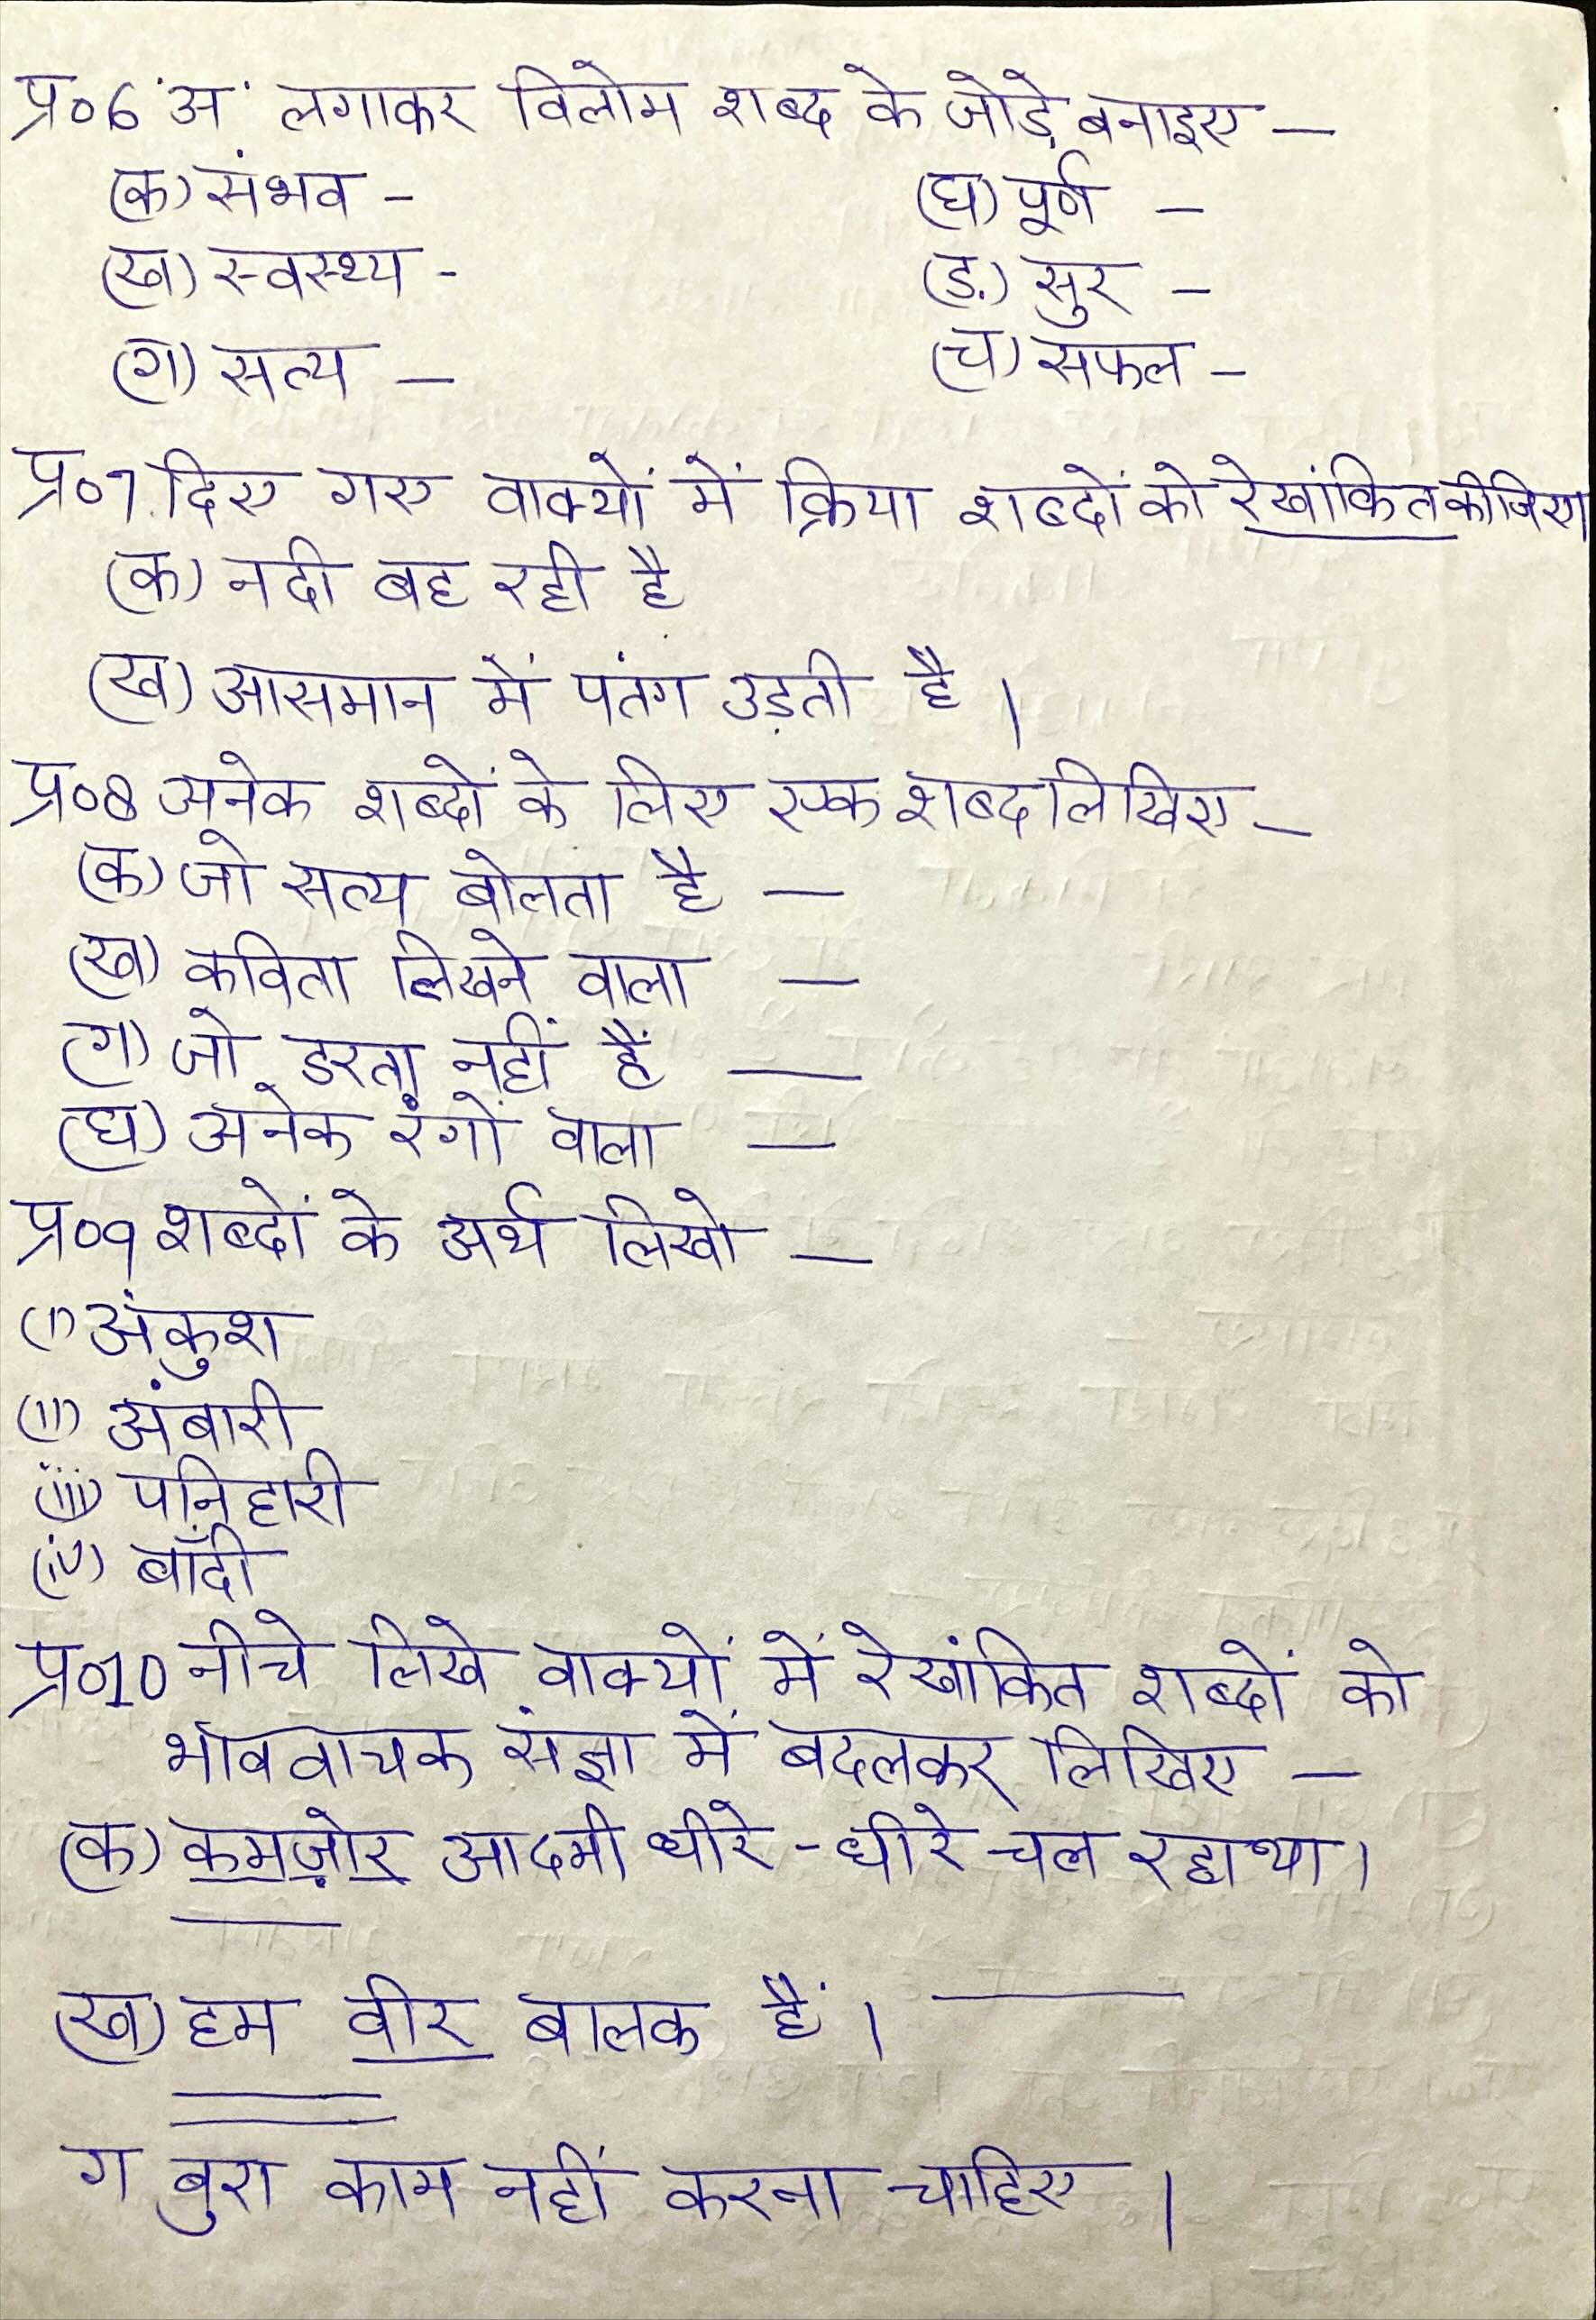 प्र०6 'अ' लगाकर विलोम शब्द के जोड़े बनाइए —
(क) संभव - (घ) पूर्ण —
(ख) स्वस्थ्य - (ड.) सुर —
(ग) सत्य — (च) सफल -
प्र०7. दिए गए वाक्यों में क्रिया शब्दों को रेखांकित कीजिए।
(क) नदी बह रही है
(ख) आसमान में पतंग उड़ती है ।
प्र०8 अनेक शब्दों के लिए एक शब्द लिखिए —
(क) जो सत्य बोलता है —
(ख) कविता लिखने वाला —
(ग) जो डरता नहीं हैं —
(घ) अनेक रंगों वाला —
प्र०9 शब्दों के अर्थ लिखो —
(i) अंकुश
(ii) अंबारी
(iii) पनिहारी
(iv) बाँदी
प्र०10 नीचे लिखे वाक्यों में रेखांकित शब्दों को
भाववाचक संज्ञा में बदलकर लिखिए —
(क) कमज़ोर आदमी धीरे - धीरे चल रहा था।
(ख) हम वीर बालक हैं ।
ग बुरा काम नहीं करना चाहिए ।